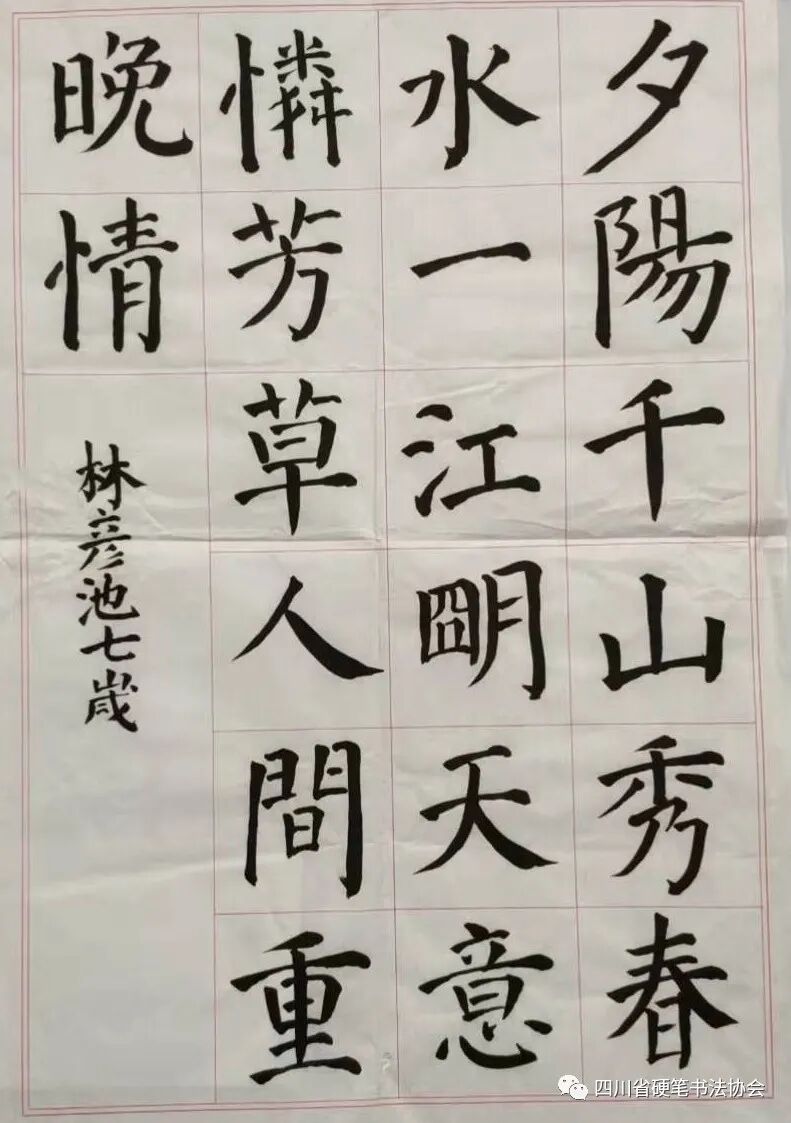 夕陽千山秀春
水一江朙天意
憐芳草人間重
晚情
林彦池七歲
四川省硬笔书法协会